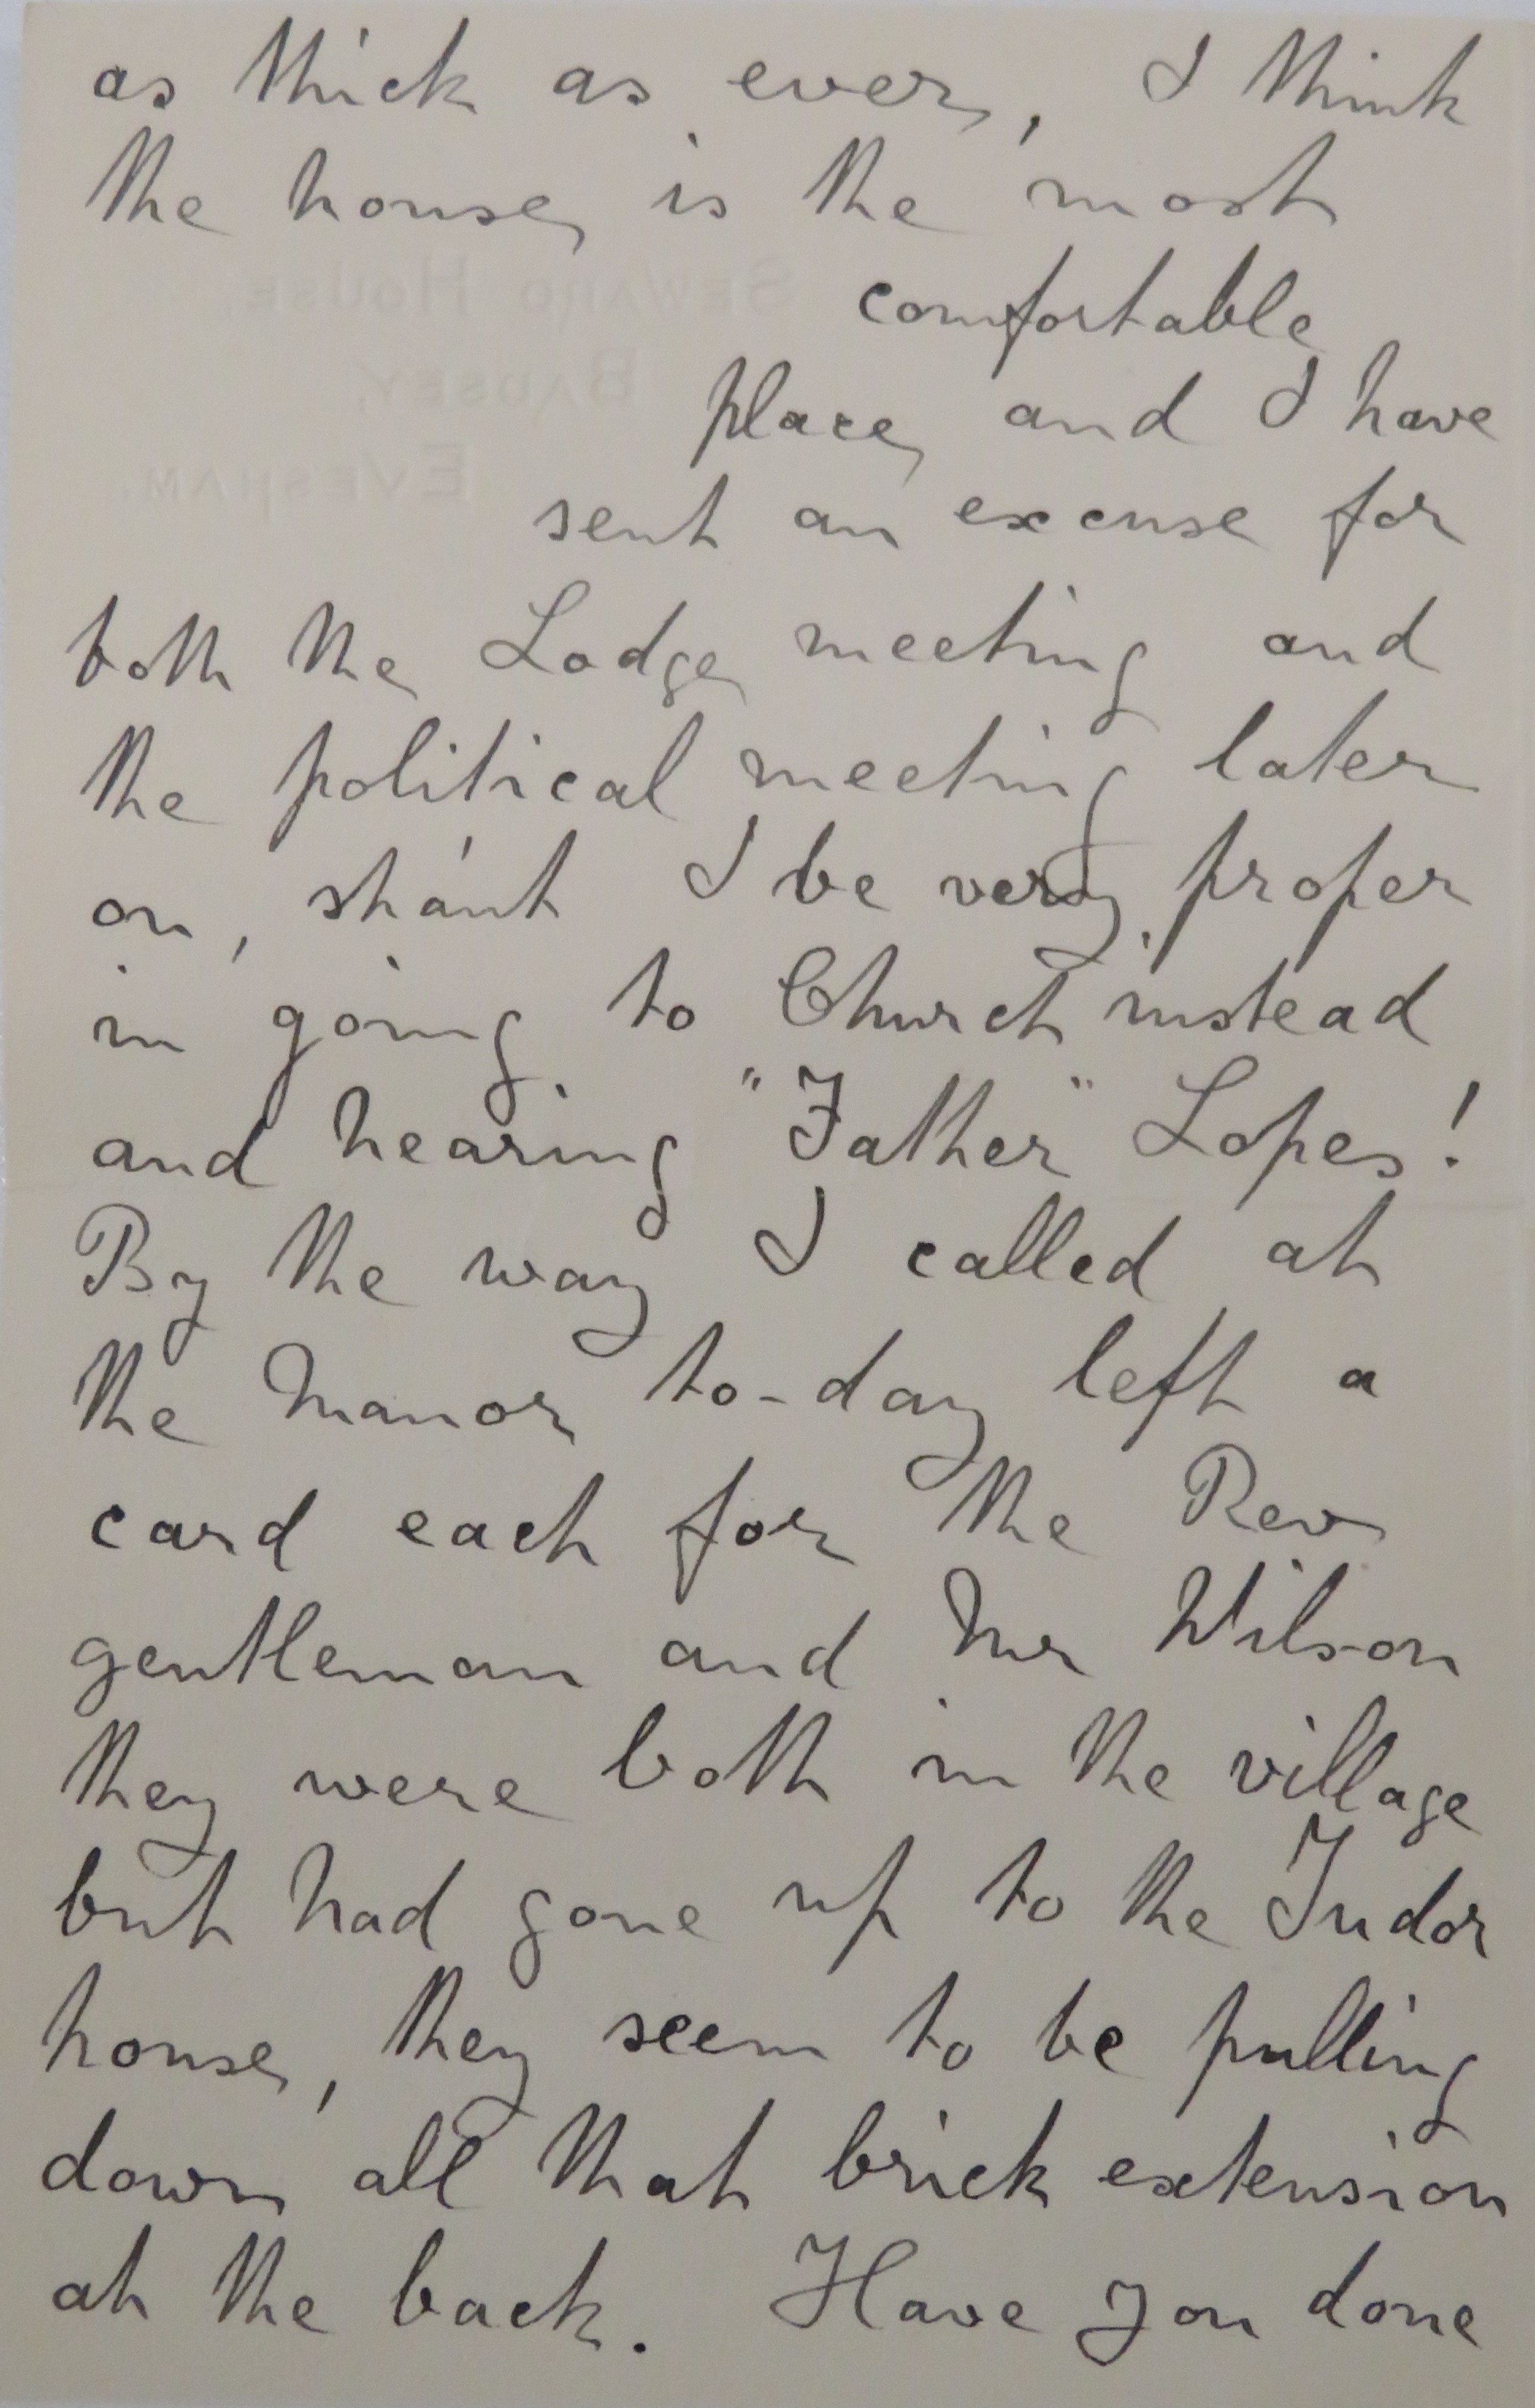 as thick as ever, I think
the house is the most
comfortable
place and I have
sent an excuse for
both the Lodge meeting and
the political meeting later
on, shan't I be very proper
in going to Church instead
and hearing "Father" Lopes!
By the way I called at
the Manor to-day left a
card each for the Rev
gentleman and Mr Wilson
they were both in the village
but had gone up to the Tudor
house, they seem to be pulling
down all that brick extension
at the back. Have you done
SEWARD HOUSE,
BADSEY,
EVESHAM.